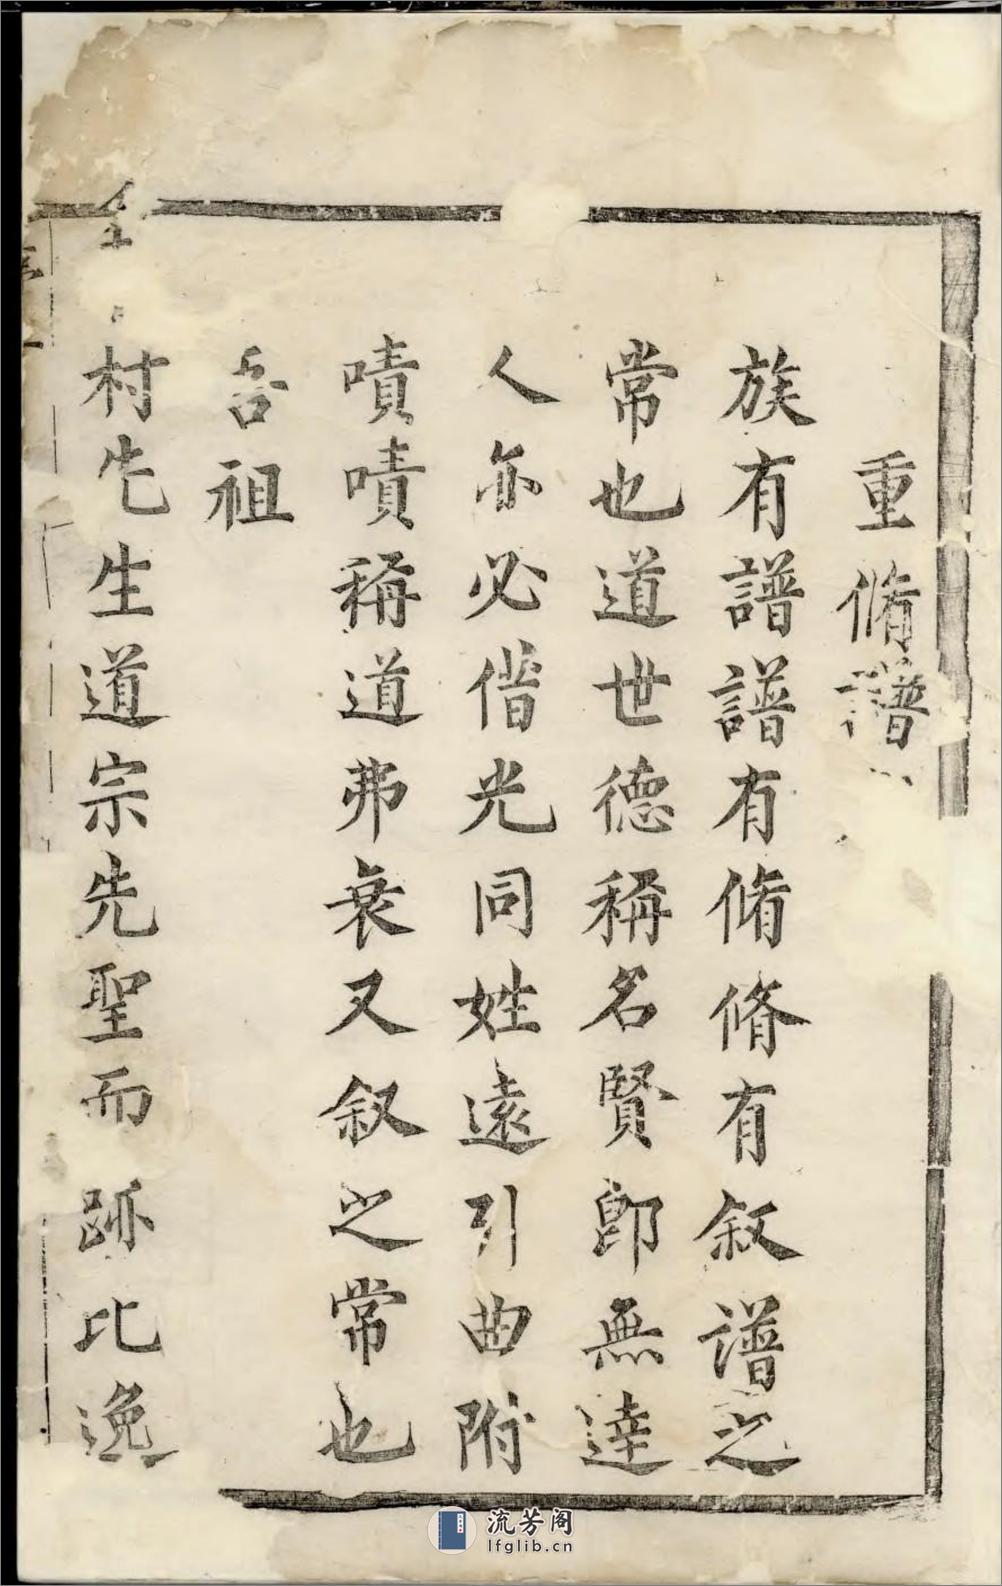 重脩譜
族有譜譜有脩脩有叙譜之
常也道世德稱名賢郎無達
人亦必偕光同姓遠引曲附
嘖嘖稱道弗衰又叙之常也
吾祖
村先生道宗先聖而跡比逸
流芳阁
lfglib.cn